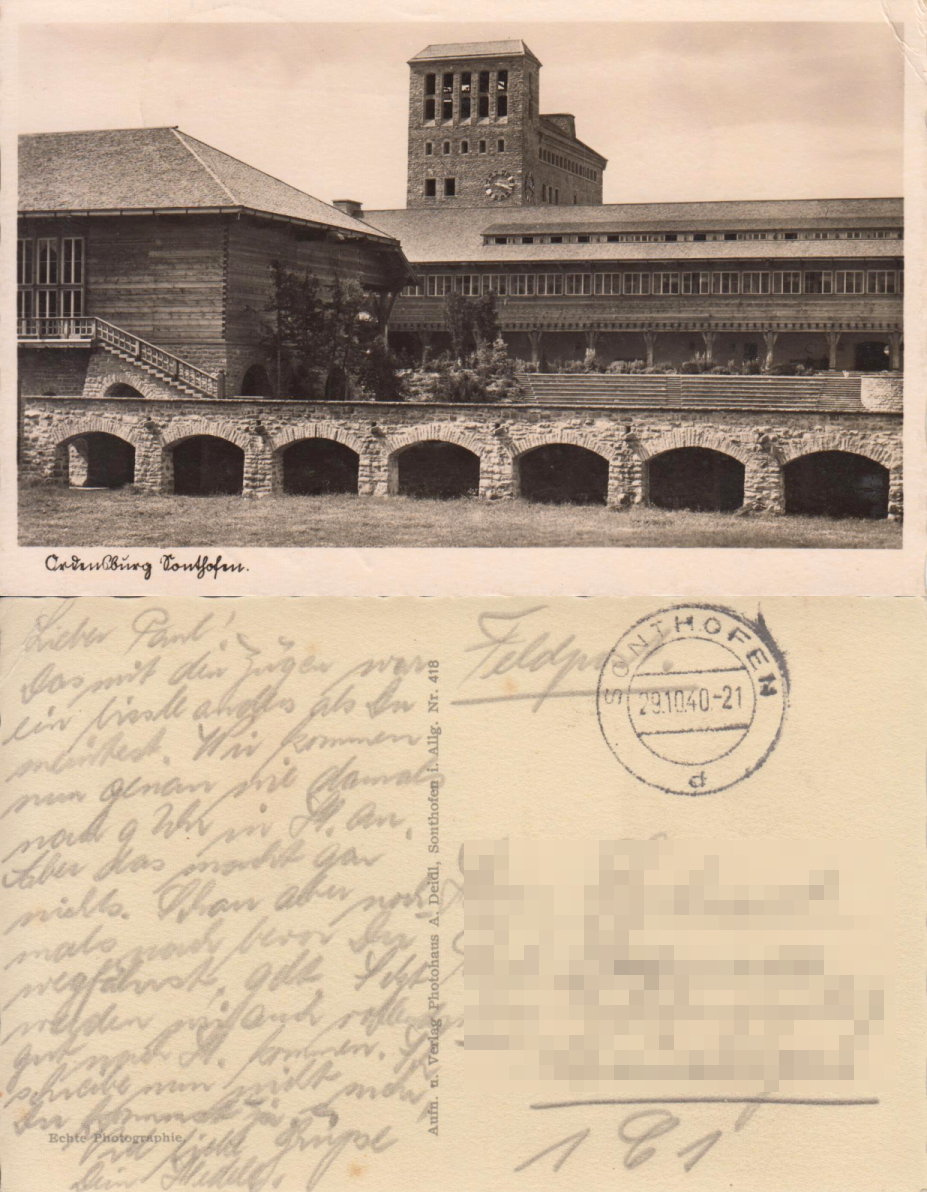 Ordensburg Sonthofen.
Lieber Paul!
Das mit den Zügen war
ein bissl anders als Du
meintest. Wir kommen
nun genau wie damals
nach 9 Uhr in St. an.
Aber das macht gar
nichts. Schau aber noch
mals nach bevor Du
wegfährst, gelt.
werden wir auch
gut nach St. kommen.
schreibe nun nicht mehr,
Du kommst ja.
Viele liebe Grüße
Dein
Echte Photographie.
Aufn. u. Verlag Photohaus A. Deidl, Sonthofen i. Allg. Nr. 418
Feldpost.
SONTHOFEN
29.10.40-21
d